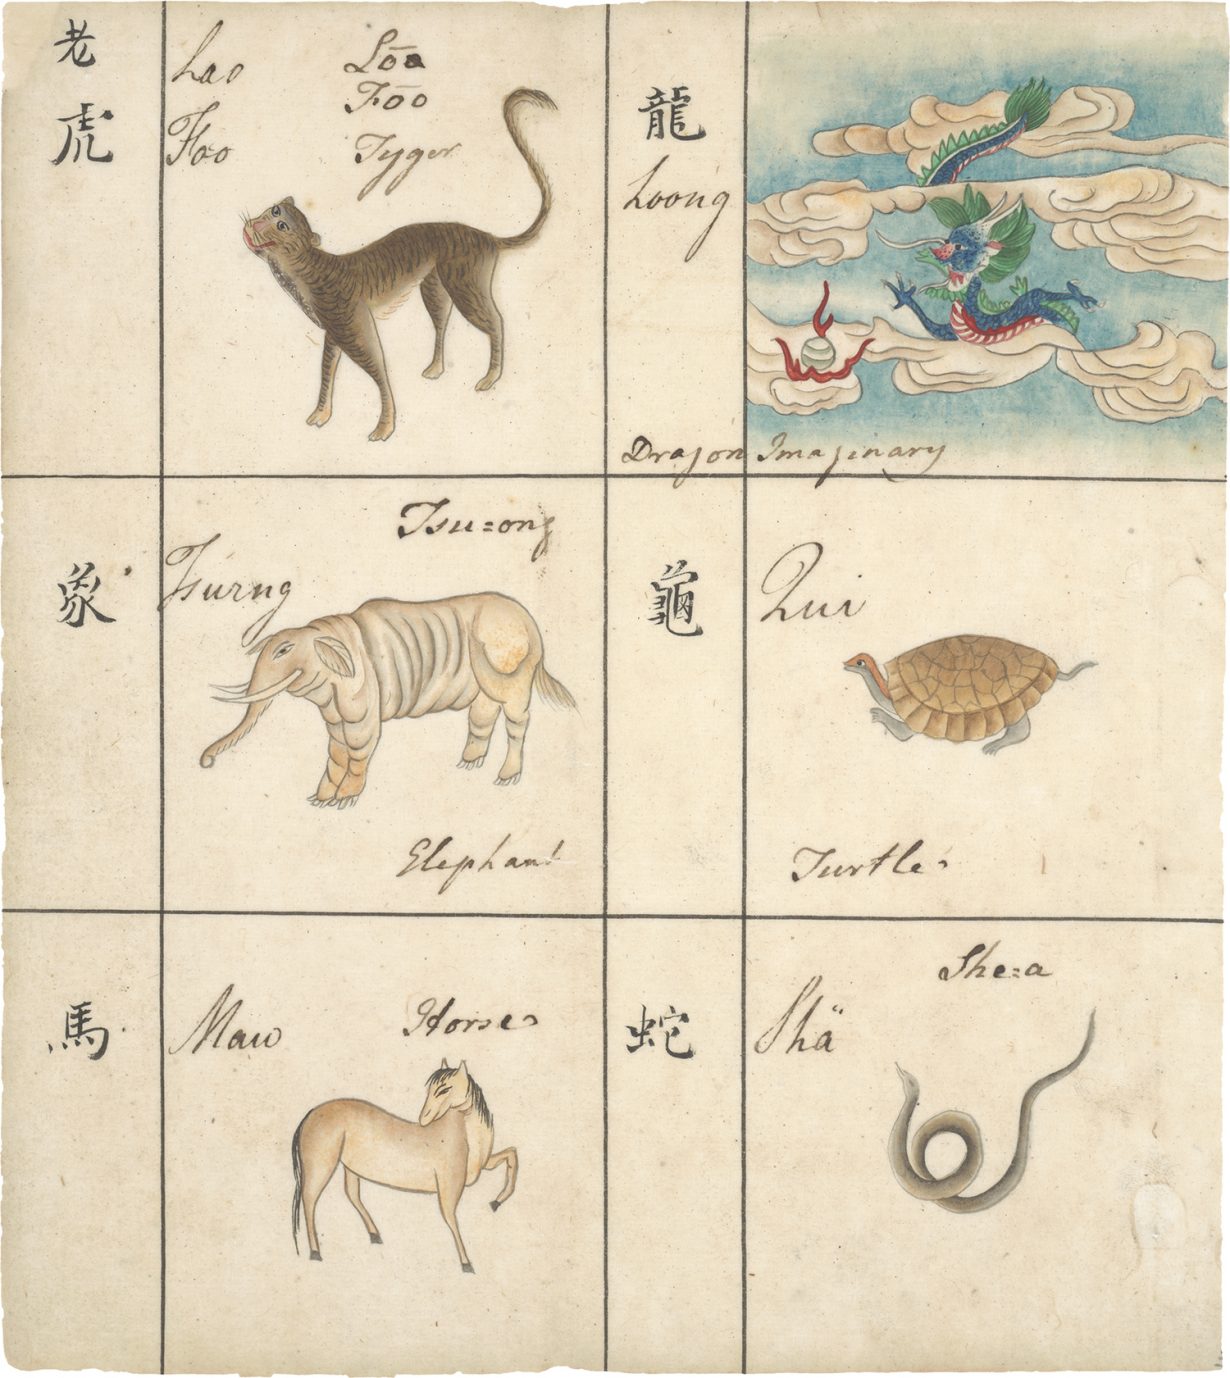 老
虎
Lao
Foo
Lōa
Fōo
Tyger
龍
Loong
Dragon Imaginary
象
Tsurng
Tsu=ong
Elephant
龜
Qui
Turtle
馬
Maw
Horse
蛇
Shä
She=a